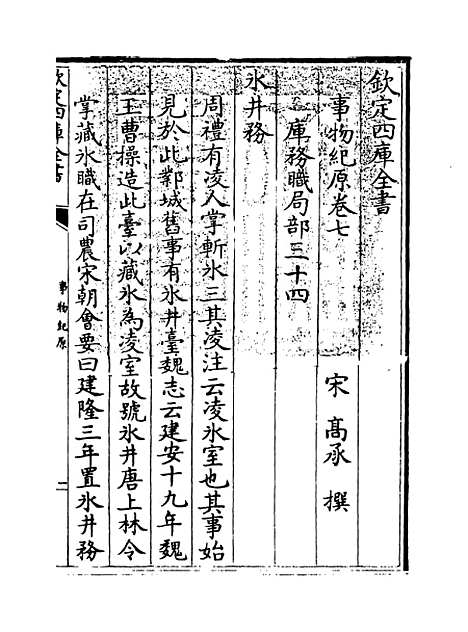 欽定四庫全書
事物紀原卷七
宋 高承 撰
庫務職局部三十四
氷井務
周禮有凌人掌斬氷三其凌注云凌氷室也其事始
見於此鄴城舊事有氷井臺魏志云建安十九年魏
王曹操造此臺以藏氷為凌室故號氷井唐上林令
掌藏氷職在司農宋朝會要曰建隆三年置氷井務
欽定四庫全書
事物紀原
二